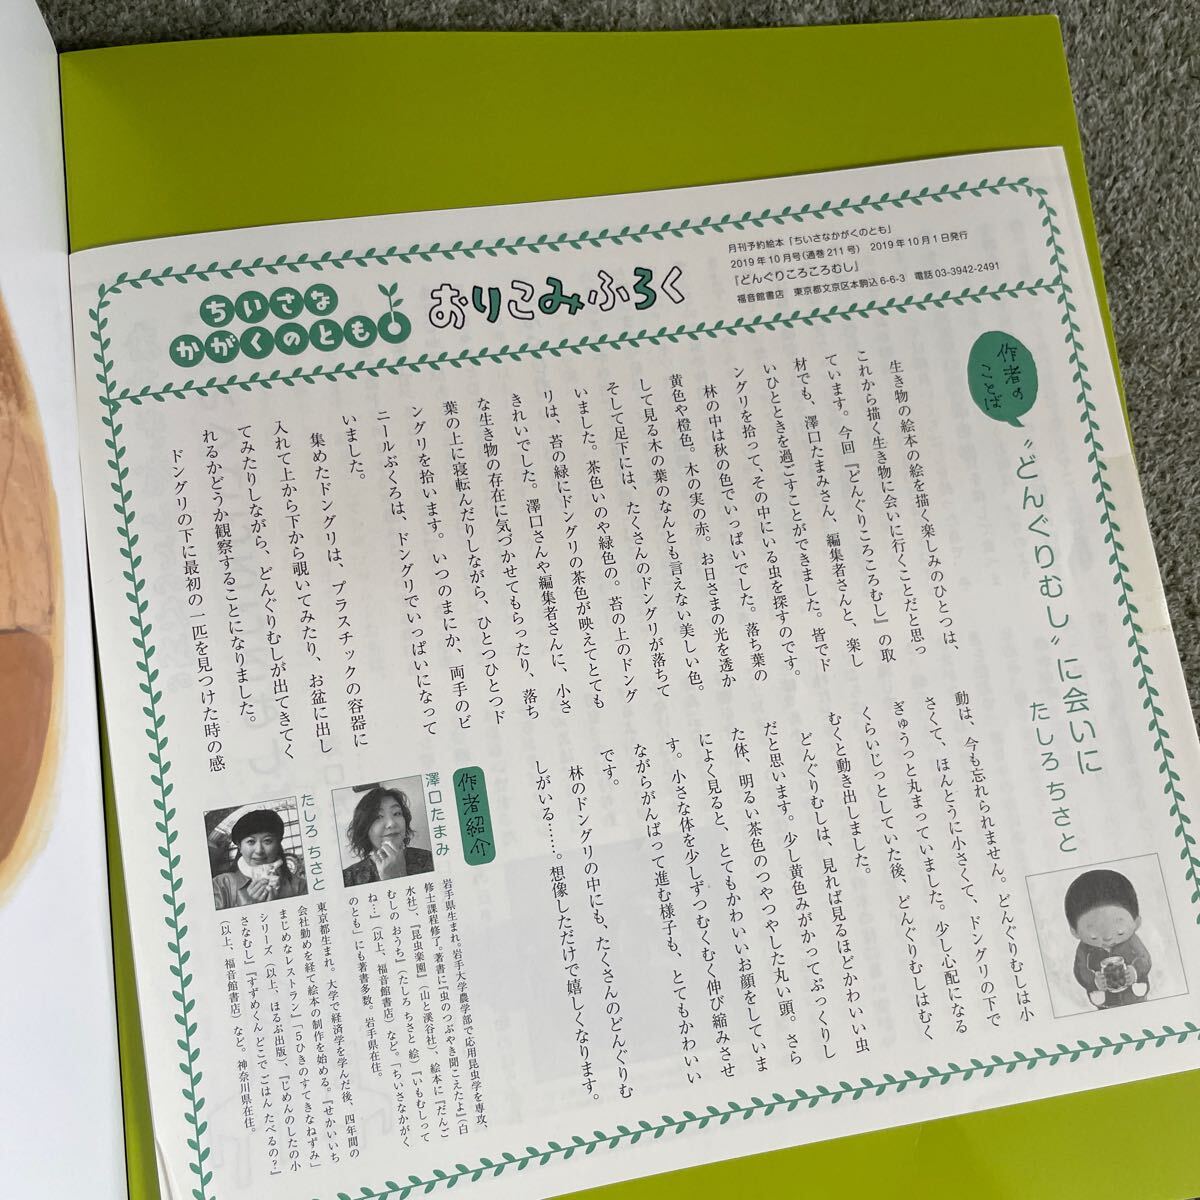 ちいさな
かがくのとも
おりこみふろく
月刊予約絵本「ちいさなかがくのとも」
2019年10月号(通巻211号) 2019年10月1日発行
『どんぐりころころむし』
福音館書店 東京都文京区本駒込6-6-3 電話03-3942-2491
作者の
ことば
〝どんぐりむし〟に会いに
たしろ ちさと
生き物の絵本の絵を描く楽しみのひとつは、
これから描く生き物に会いに行くことだと思っ
ています。今回『どんぐりころころむし』の取
材でも、澤口たまみさん、編集者さんと、楽し
いひとときを過ごすことができました。皆でド
ングリを拾って、その中にいる虫を探すのです。
林の中は秋の色でいっぱいでした。落ち葉の
黄色や橙色。木の実の赤。お日さまの光を透か
して見る木の葉のなんとも言えない美しい色。
そして足下には、たくさんのドングリが落ちて
いました。茶色いのや緑色の。苔の上のドング
リは、苔の緑にドングリの茶色が映えてとても
きれいでした。澤口さんや編集者さんに、小さ
な生き物の存在に気づかせてもらったり、落ち
葉の上に寝転んだりしながら、ひとつひとつド
ングリを拾います。いつのまにか、両手のビ
ニールぶくろは、ドングリでいっぱいになって
いました。
集めたドングリは、プラスチックの容器に
入れて上から下から覗いてみたり、お盆に出し
てみたりしながら、どんぐりむしが出てきてく
れるかどうか観察することになりました。
ドングリの下に最初の一匹を見つけた時の感
動は、今も忘れられません。どんぐりむしは小
さくて、ほんとうに小さくて、ドングリの下で
ぎゅうっと丸まっていました。少し心配になる
くらいじっとしていた後、どんぐりむしはむく
むくと動き出しました。
どんぐりむしは、見れば見るほどかわいい虫
だと思います。少し黄色みがかってぷっくりし
た体、明るい茶色のつやつやした丸い頭。さら
によく見ると、とてもかわいいお顔をしていま
す。小さな体を少しずつむくむく伸び縮みさせ
ながらがんばって進む様子も、とてもかわいい
です。
林のドングリの中にも、たくさんのどんぐりむ
しがいる……。想像しただけで嬉しくなります。
作者紹介
澤口たまみ
岩手県生まれ。岩手大学農学部で応用昆虫学を専攻、
修士課程修了。著書に『虫のつぶやき聞こえたよ』(白
水社)、『昆虫楽園』(山と溪谷社)、絵本に『だんご
むしのおうち』(たしろ ちさと 絵)『いもむしって
ね…』(以上、福音館書店)など。「ちいさなかがく
のとも」にも著書多数。岩手県在住。
たしろ ちさと
東京都生まれ。大学で経済学を学んだ後、四年間の
会社勤めを経て絵本の制作を始める。『せかいいち
まじめなレストラン』「5ひきのすてきなねずみ」
シリーズ(以上、ほるぷ出版)、『じめんのしたの小
さなむし』『すずめくん どこで ごはん たべるの?』
(以上、福音館書店)など。神奈川県在住。